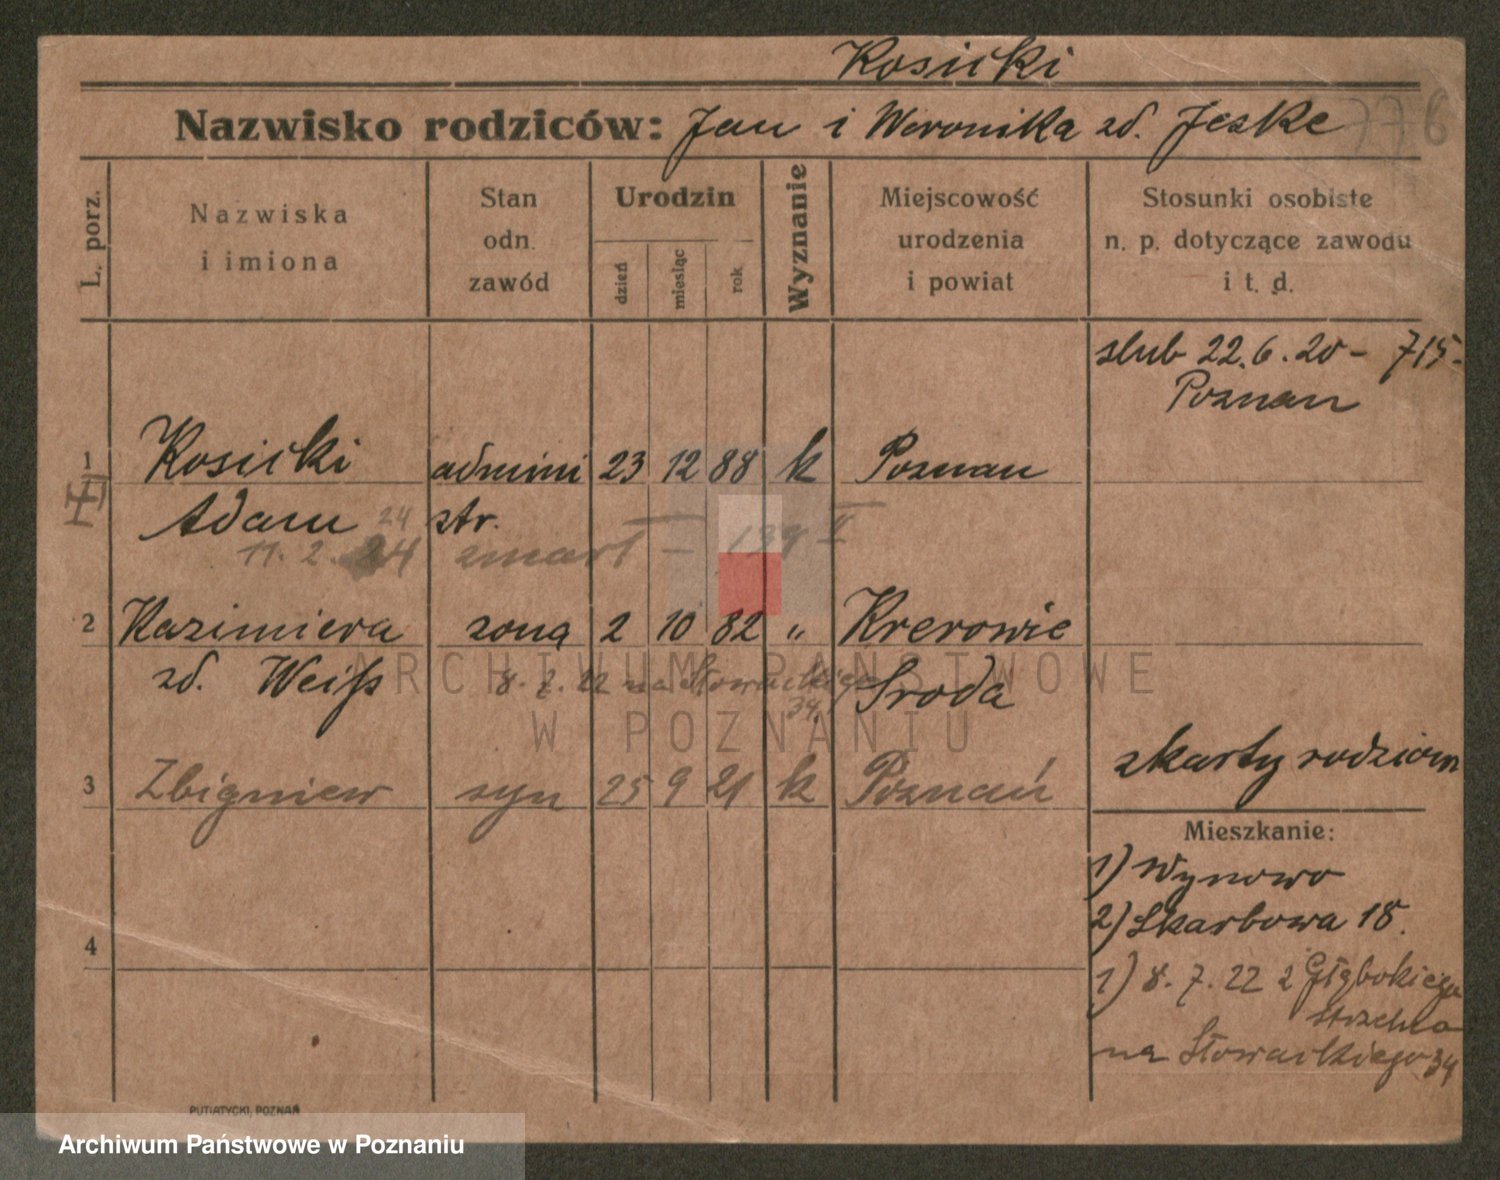 Kosicki
Nazwisko rodziców: Jan i Weronika zd. Jeske 776
L. porz.
Nazwiska
i imiona
Stan
odn.
zawód
Urodzin
dzień
miesiąc
rok
Wyznanie
Miejscowość
urodzenia
i powiat
Stosunki osobiste
n. p. dotyczące zawodu
i t. d.
slub 22.6.20 - 715.
Poznan
1 Kosicki admini 23 12 88 k Poznan
Adam str.
11. 2. 24 zmarł - 139 II
24
2 Kazimiera zona 2 10 82 " Krerowie
zd. Weiß 8. 7. 22 na Słowackiego Sroda
34
z karty rodzicow
3 Zbigniew syn 25 9 21 k Poznań
Mieszkanie:
1) Wynowo
2) Skarbowa 18.
4
1) 8. 7. 22 z Głębokiego
na Słowackiego 34
PUTIATYCKI, POZNAŃ
ARCHIWUM PAŃSTWOWE
W POZNANIU
Archiwum Państwowe w Poznaniu